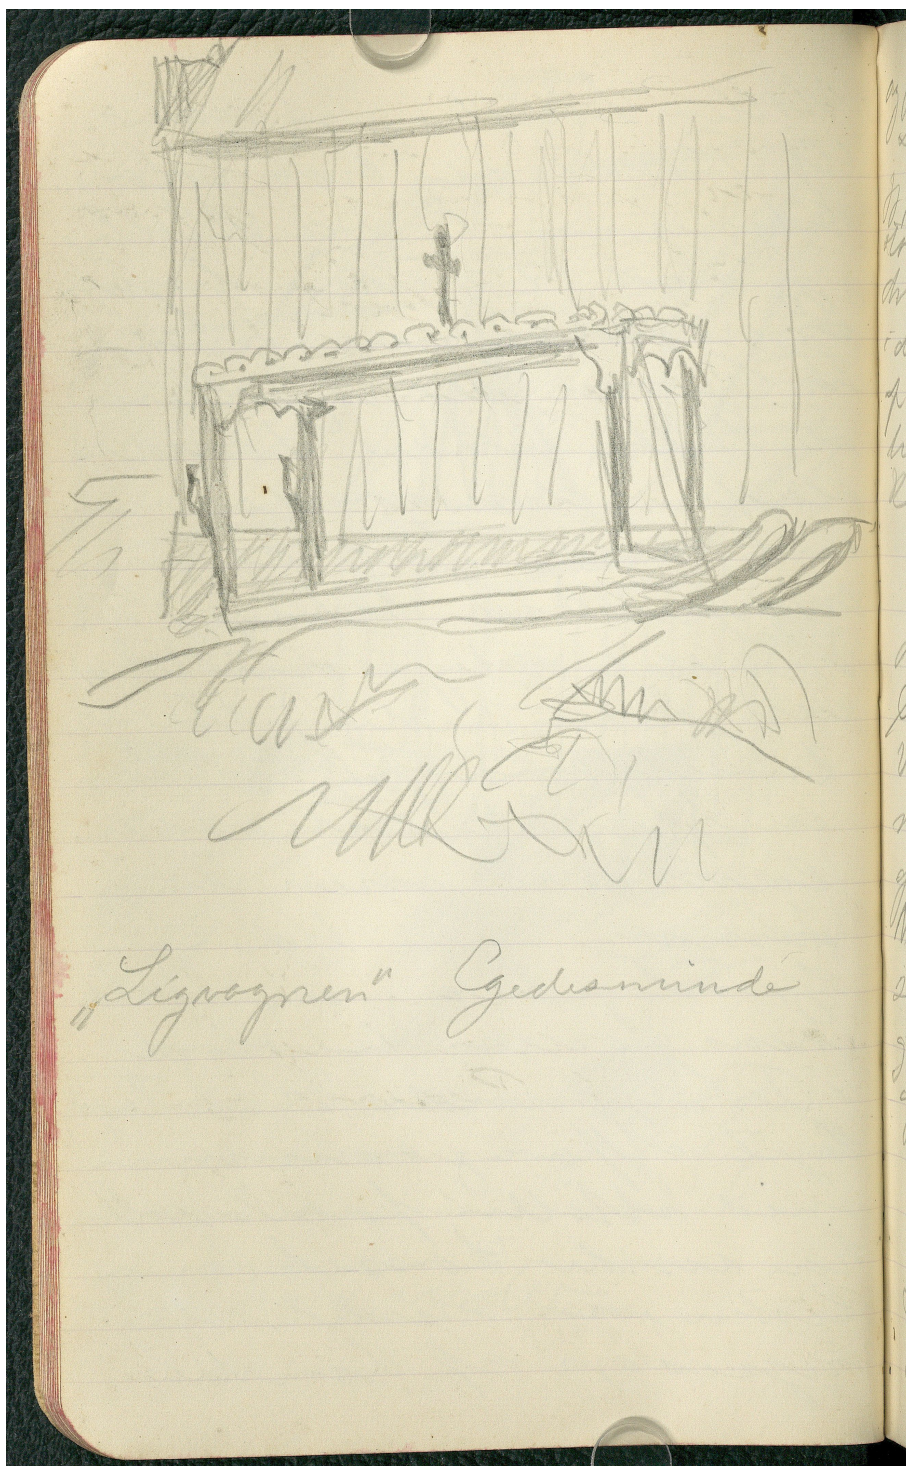 „Ligvagnen“ Egedesminde